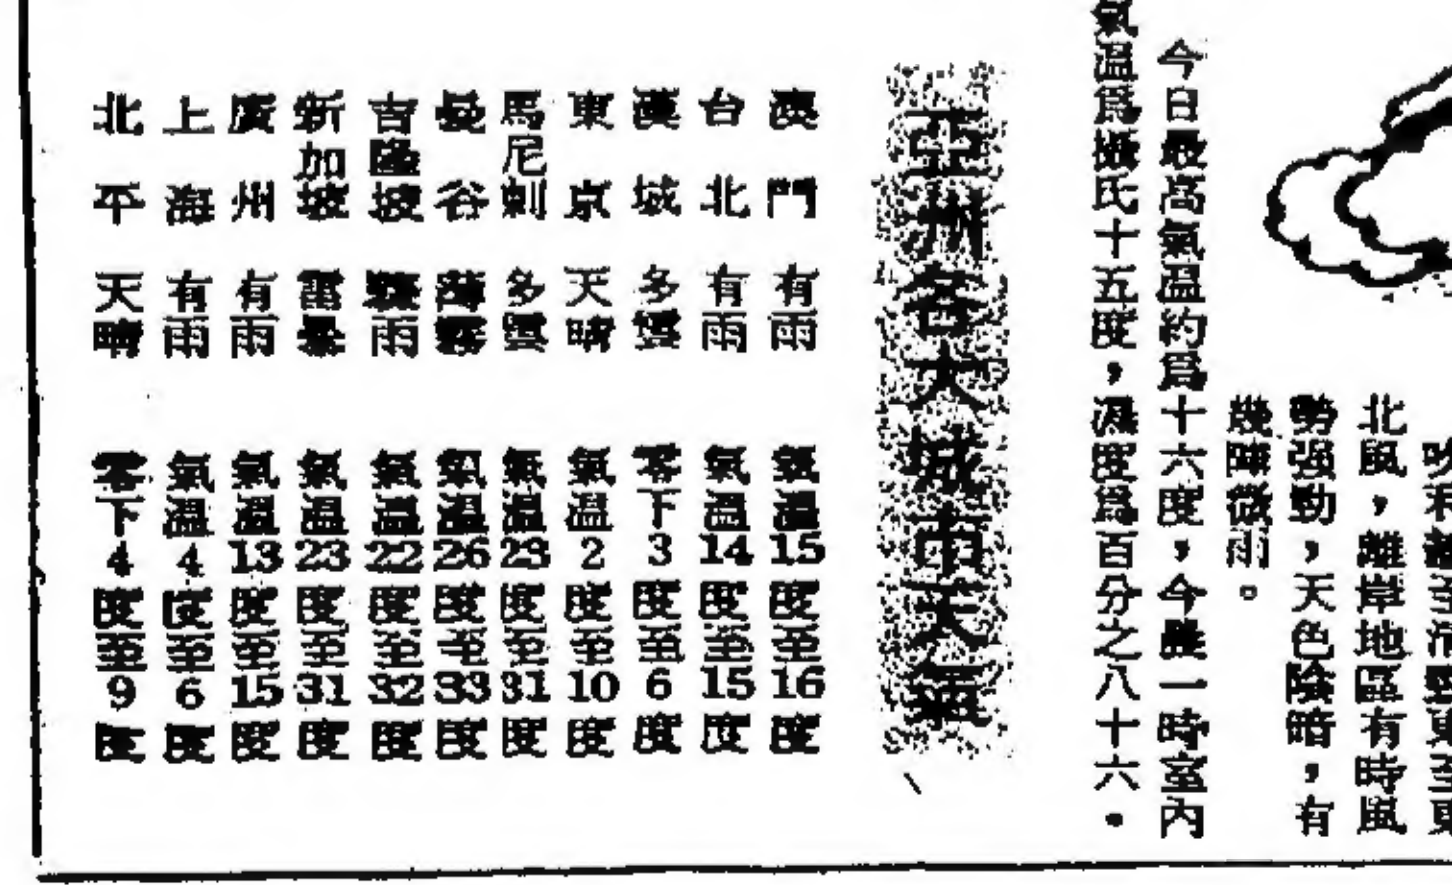 吹和緩至清勁東至東
北風，離岸地區有時風
勢強勁，天色陰暗，有
幾陣微雨。
今日最高氣溫約爲十六度，今晨一時室內
氣溫爲攝氏十五度，濕度爲百分之八十六．
亞洲各大城市天氣
澳門 有雨 氣溫15度至16度
台北 有雨 氣溫14度至15度
漢城 多雲 零下3度至6度
東京 天晴 氣溫2度至10度
馬尼剌 多雲 氣溫23度至31度
曼谷 薄霧 氣溫26度至33度
吉隆坡 驟雨 氣溫22度至32度
新加坡 雷暴 氣溫23度至31度
廣州 有雨 氣溫13度至15度
上海 有雨 氣溫4度至6度
北平 天晴 零下4度至9度